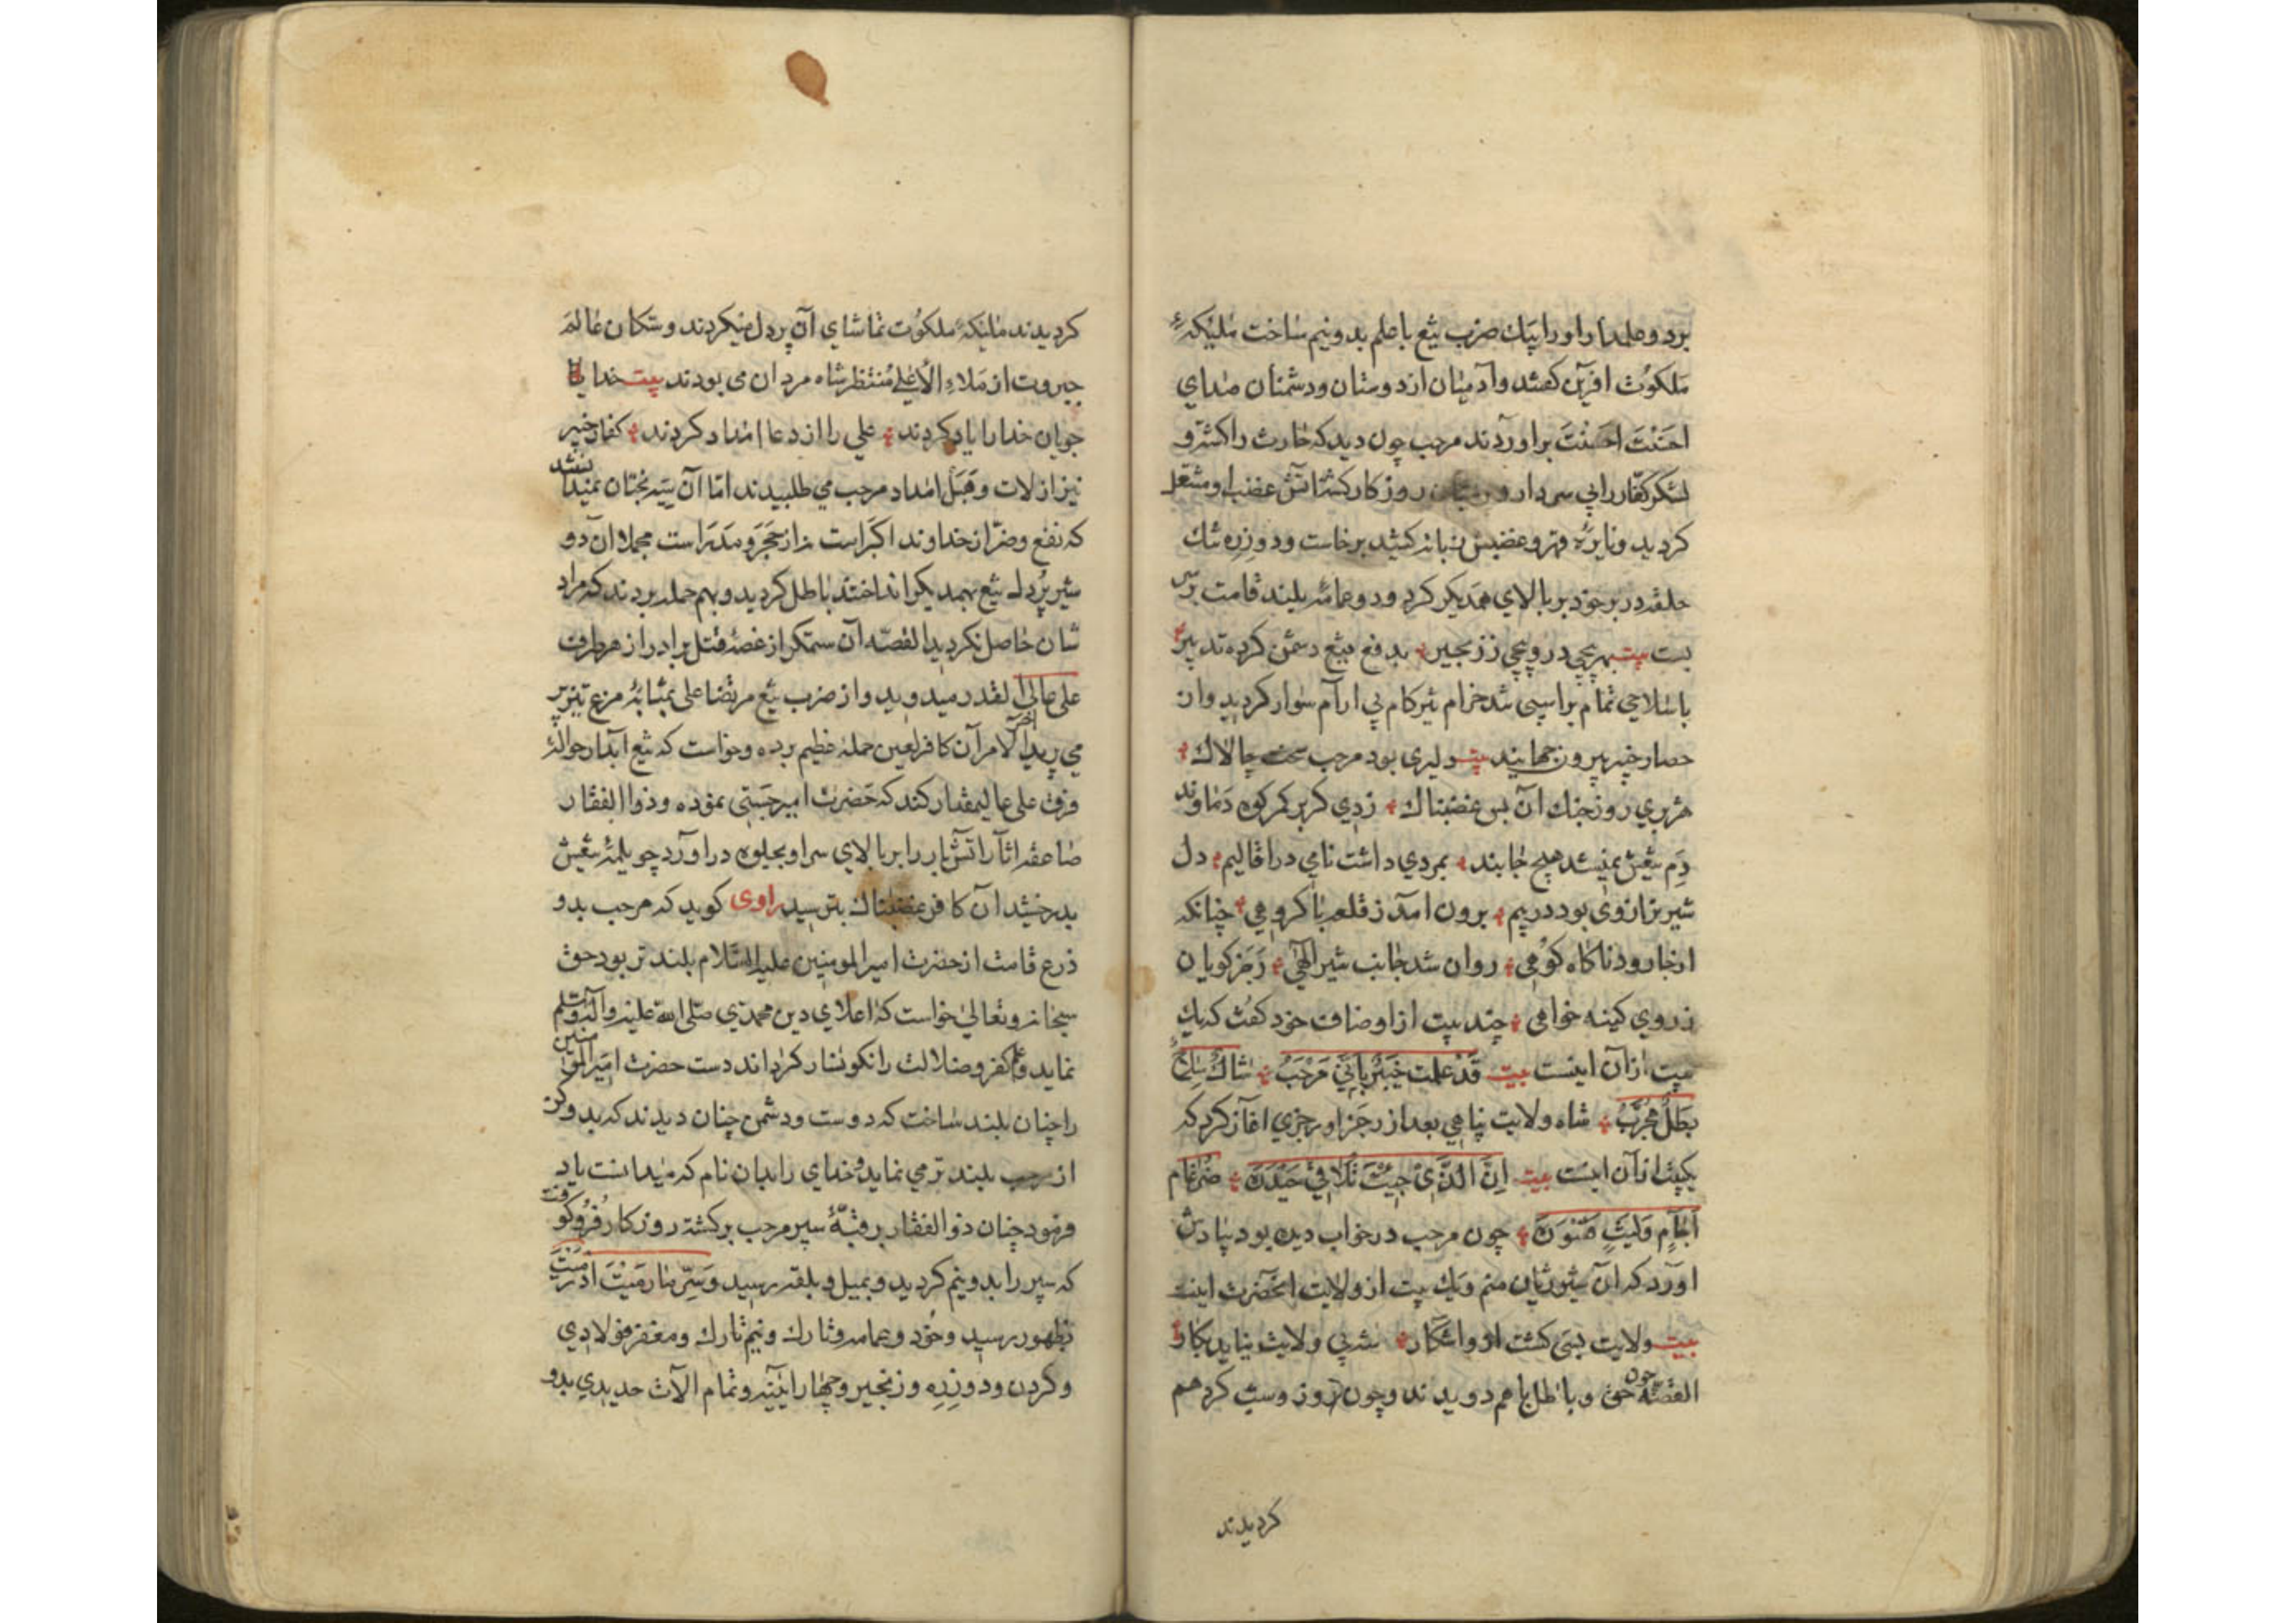 برد و علمدار او را بیك ضرب تیغ با علم بدو نیم ساخت ملیکهٔ
ملکوت افرین کفتند و آدمیان از دوستان و دشمنان صدای
احسنت احسنت براوردند مرحب چون دید که حارث را کشت و
لشکر کفار را بی سردار و روزکار کشت اتش غضب او مشتعل
کردید و نایرهٔ قهر و غضبش زبانه کشید برخاست و دو زره تنك
حلقه در بر خود بر بالای همدیکر کرد و دو عمامه بلند قامت بر سر
بست بیت بهر پیچی درو پیچی ز زنجیر بدفع تیغ دشمن کرده تدبیر
با سلاحی تمام بر اسپی تند خرام تیز کام بی ارام سوار کردید و از
حصار خیبر بیرون جهانید بیت دلیری بود مرحب سخت چالاك
هژبری روز جنك آن بس غضبناك زدی کر بر کمر کوه دماوند
دم تیغش نمیشد هیچ جا بند بمردی داشت نامی در اقالیم دل
شیر نر از وی بود در بیم برون امد ز قلعه با کروهی چنانکه
از جا رود ناکاه کوهی روان شد جانب شیر الهی رجز کویان
ز روی کینه خواهی چند بیت از اوصاف خود کفت که یك
بیت از آن اینست بیت قد علمت خیبر بانی مرحب شاك سلاح
بطل مجرب شاه ولایت پناهی بعد از رجز او رجزی اغاز کرد که
یکبیت از آن اینست بیت ان الذی جیت تلاقی حیدره ضرغام
اجام ولیث قسوره چون مرحب در خواب دیده بود بیادش
اورد که ان شیر ژیان منم و یك بیت از ولایت انحضرت اینست
بیت ولایت بسی کشت ازو اشکار شد بی ولایت نیاید بکار
القصه چون حق و باطل با هم دویدند و چون روز و شب کرد هم
کردیدند
کردیدند ملیکهٔ ملکوت تماشای آن پر دل میکردند و سکان عالم
جبروت از ملاء الاعلی منتظر شاه مردان می بودند بیت خدا
جویان خدا را یاد کردند علی را از دعا امداد کردند کفار خیبر
نیز از لات و هبل امداد مرحب می طلبیدند اما آن سیه بختان نمیدانستند
که نفع و ضر از خداوند اکبر است نه از حجر و مدر است مجملا ان دو
شیر پر دل تیغ بهمدیکر انداختند باطل کردید و بهم حمله بردند که مراد
شان حاصل نکردید القصه آن ستمکر از غصهٔ قتل برادر از هر طرف
علی عالی القدر میدوید و از ضرب تیغ مرتضا علی بمثابهٔ مرغ تیز پر
می پرید اخر الامر آن کافر لعین حمله عظیم برده و خواست که تیغ ابدار حوالهٔ
فرق علی عالیمقدار کند که حضرت امیر جستی نموده و ذوالفقار
صاعقه اثار اتش بار را بر بالای سر او بجلوه در اورد چو تیغش
بدرخشید آن کافر غضبناك بترسید راوی کوید که مرحب بدو
ذرع قامت از حضرت امیر المومنین علیه السلام بلند تر بود حق
سبحانه و تعالی خواست که اعلای دین محمدی صلی الله علیه و اله و سلم
نماید و علم کفر و ضلالت را نکونسار کرداند دست حضرت امیر المومنین
را چنان بلند ساخت که دوست و دشمن چنان دیدند که بدو کز
از مرحب بلند تر می نماید و خدای را بدان نام که میدانست یاد
فرمود چنان ذوالفقار بر قبهٔ سپر مرحب برکشته روزکار فرو کوفت
که سپر را بدو نیم کردید و بحلقه رسید و سر ما رمیت اذ رمیت
بظهور رسید و خود و عمامه و تارك و نیم تارك و مغفر فولادی
و کردن و دو زره و زنجیر و چهار ایینه و تمام الات حدیدی بدو